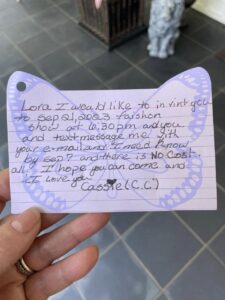 Lora I would like to invint you
to Sep 21, 2023 faishon
show at 6:30pm and you
and text message me with
your e-mail and I need to know
by Sep 7 and there is No Cost.
at all I hope you can come and
I love you
Cassie (C.C.)